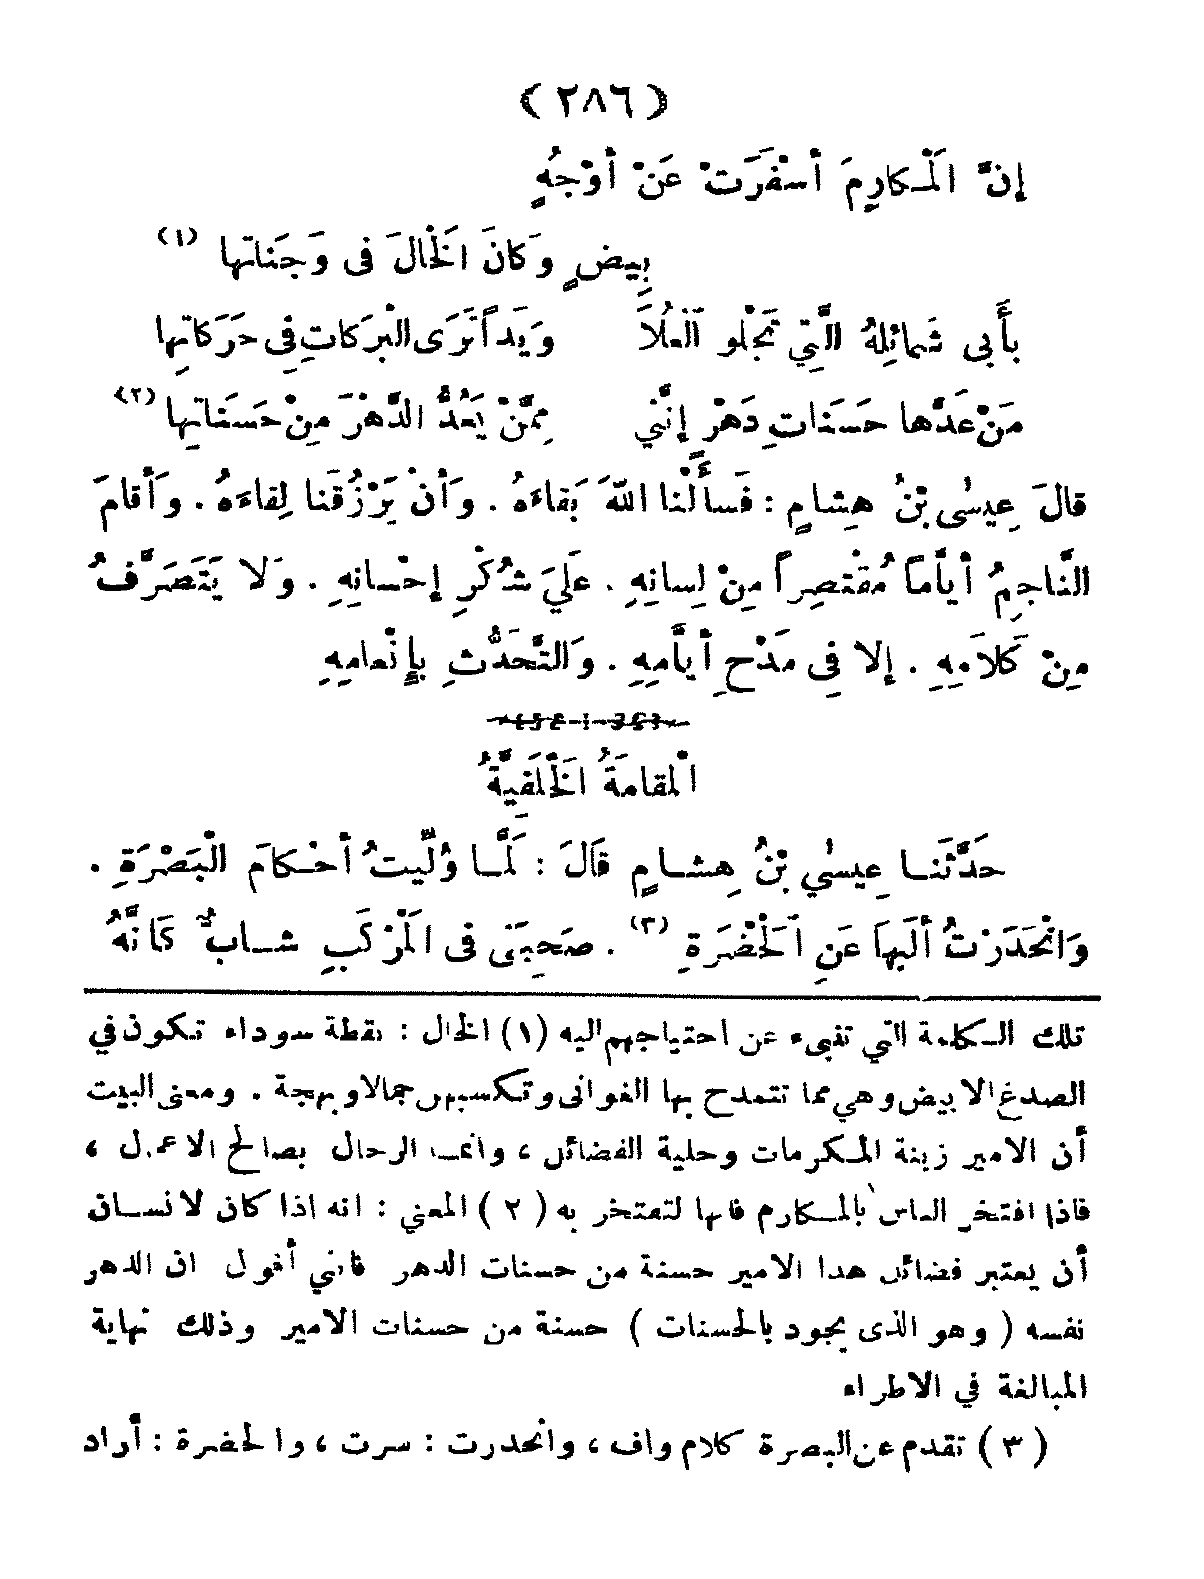 ( ٢٨٦ )
إِنَّ الْمَكارِمَ أسْفَرَتْ عَنْ أوْجُهٍ
بِيضٍ وَكانَ الْخالَ فى وَجَناتها (١)
بأَبى شَمائِلهُ الَّتِي تَجْلو ٱلْعُلاَ وَيَداً تَرَى الْبرَكاتِ فِى حَرَكاتِها
مَنْ عَدَّها حَسَنَاتِ دَهْرٍ إِنَّنى مِمَّنْ يَعُدُّ الدَّهْرَ مِنْ حَسَناتِها (٢)
قالَ عِيسٰى بْنُ هِشامٍ : فَسأَلْنا اللهَ بَقاءَهُ . وَأنْ يَرْزُقَنا لِقاءَهُ . وَأقامَ
النَّاجِمُ أيَّاماً مُقْتَصِراً مِنْ لِسانِهِ . عَلَي شُكْرِ إحْسانِهِ . وَلا يَتَصَرَّفُ
مِنْ كَلاَمِهِ . إلا فِى مَدْحِ أيَّامِهِ . وَالتَّحَدُّثِ بِإِنْعامِهِ
الْمقامَةُ الْخَلَفِيَّةُ
حَدَّثَنا عِيسٰي بْنُ هِشامٍ قالَ : لَمَّا وُلِّيتُ أحْكامَ الْبَصْرَةِ .
وَانْحَدَرْتُ ألَيها عَنِ ٱلْحَضْرَةِ (٣) . صَحِبَنى فى الْمَرْكَبِ شابٌّ كَانَّهُ
تلك الكلمة التي تنبىء عن احتياجهم اليه (١) الخال : نقطة سوداء تكون في
الصدغ الابيض وهي مما تتمدح بها الغوانى وتكسبهن جمالا وبهجة . ومعنى البيت
أن الامير زينة المكرمات وحلية الفضائل ، وانما الرجال بصالح الاعمال ،
فاذا افتخر الناس بالمكارم فانها لتفتخر به ( ٢ ) المعني : انه اذا كان لانسان
أن يعتبر فضائل هذا الامير حسنة من حسنات الدهر فانني أقول ان الدهر
نفسه ( وهو الذى يجود بالحسنات ) حسنة من حسنات الامير وذلك نهاية
المبالغة في الاطراء
( ٣ ) تقدم عن البصرة كلام واف ، وانحدرت : سرت ، والحضرة : أراد